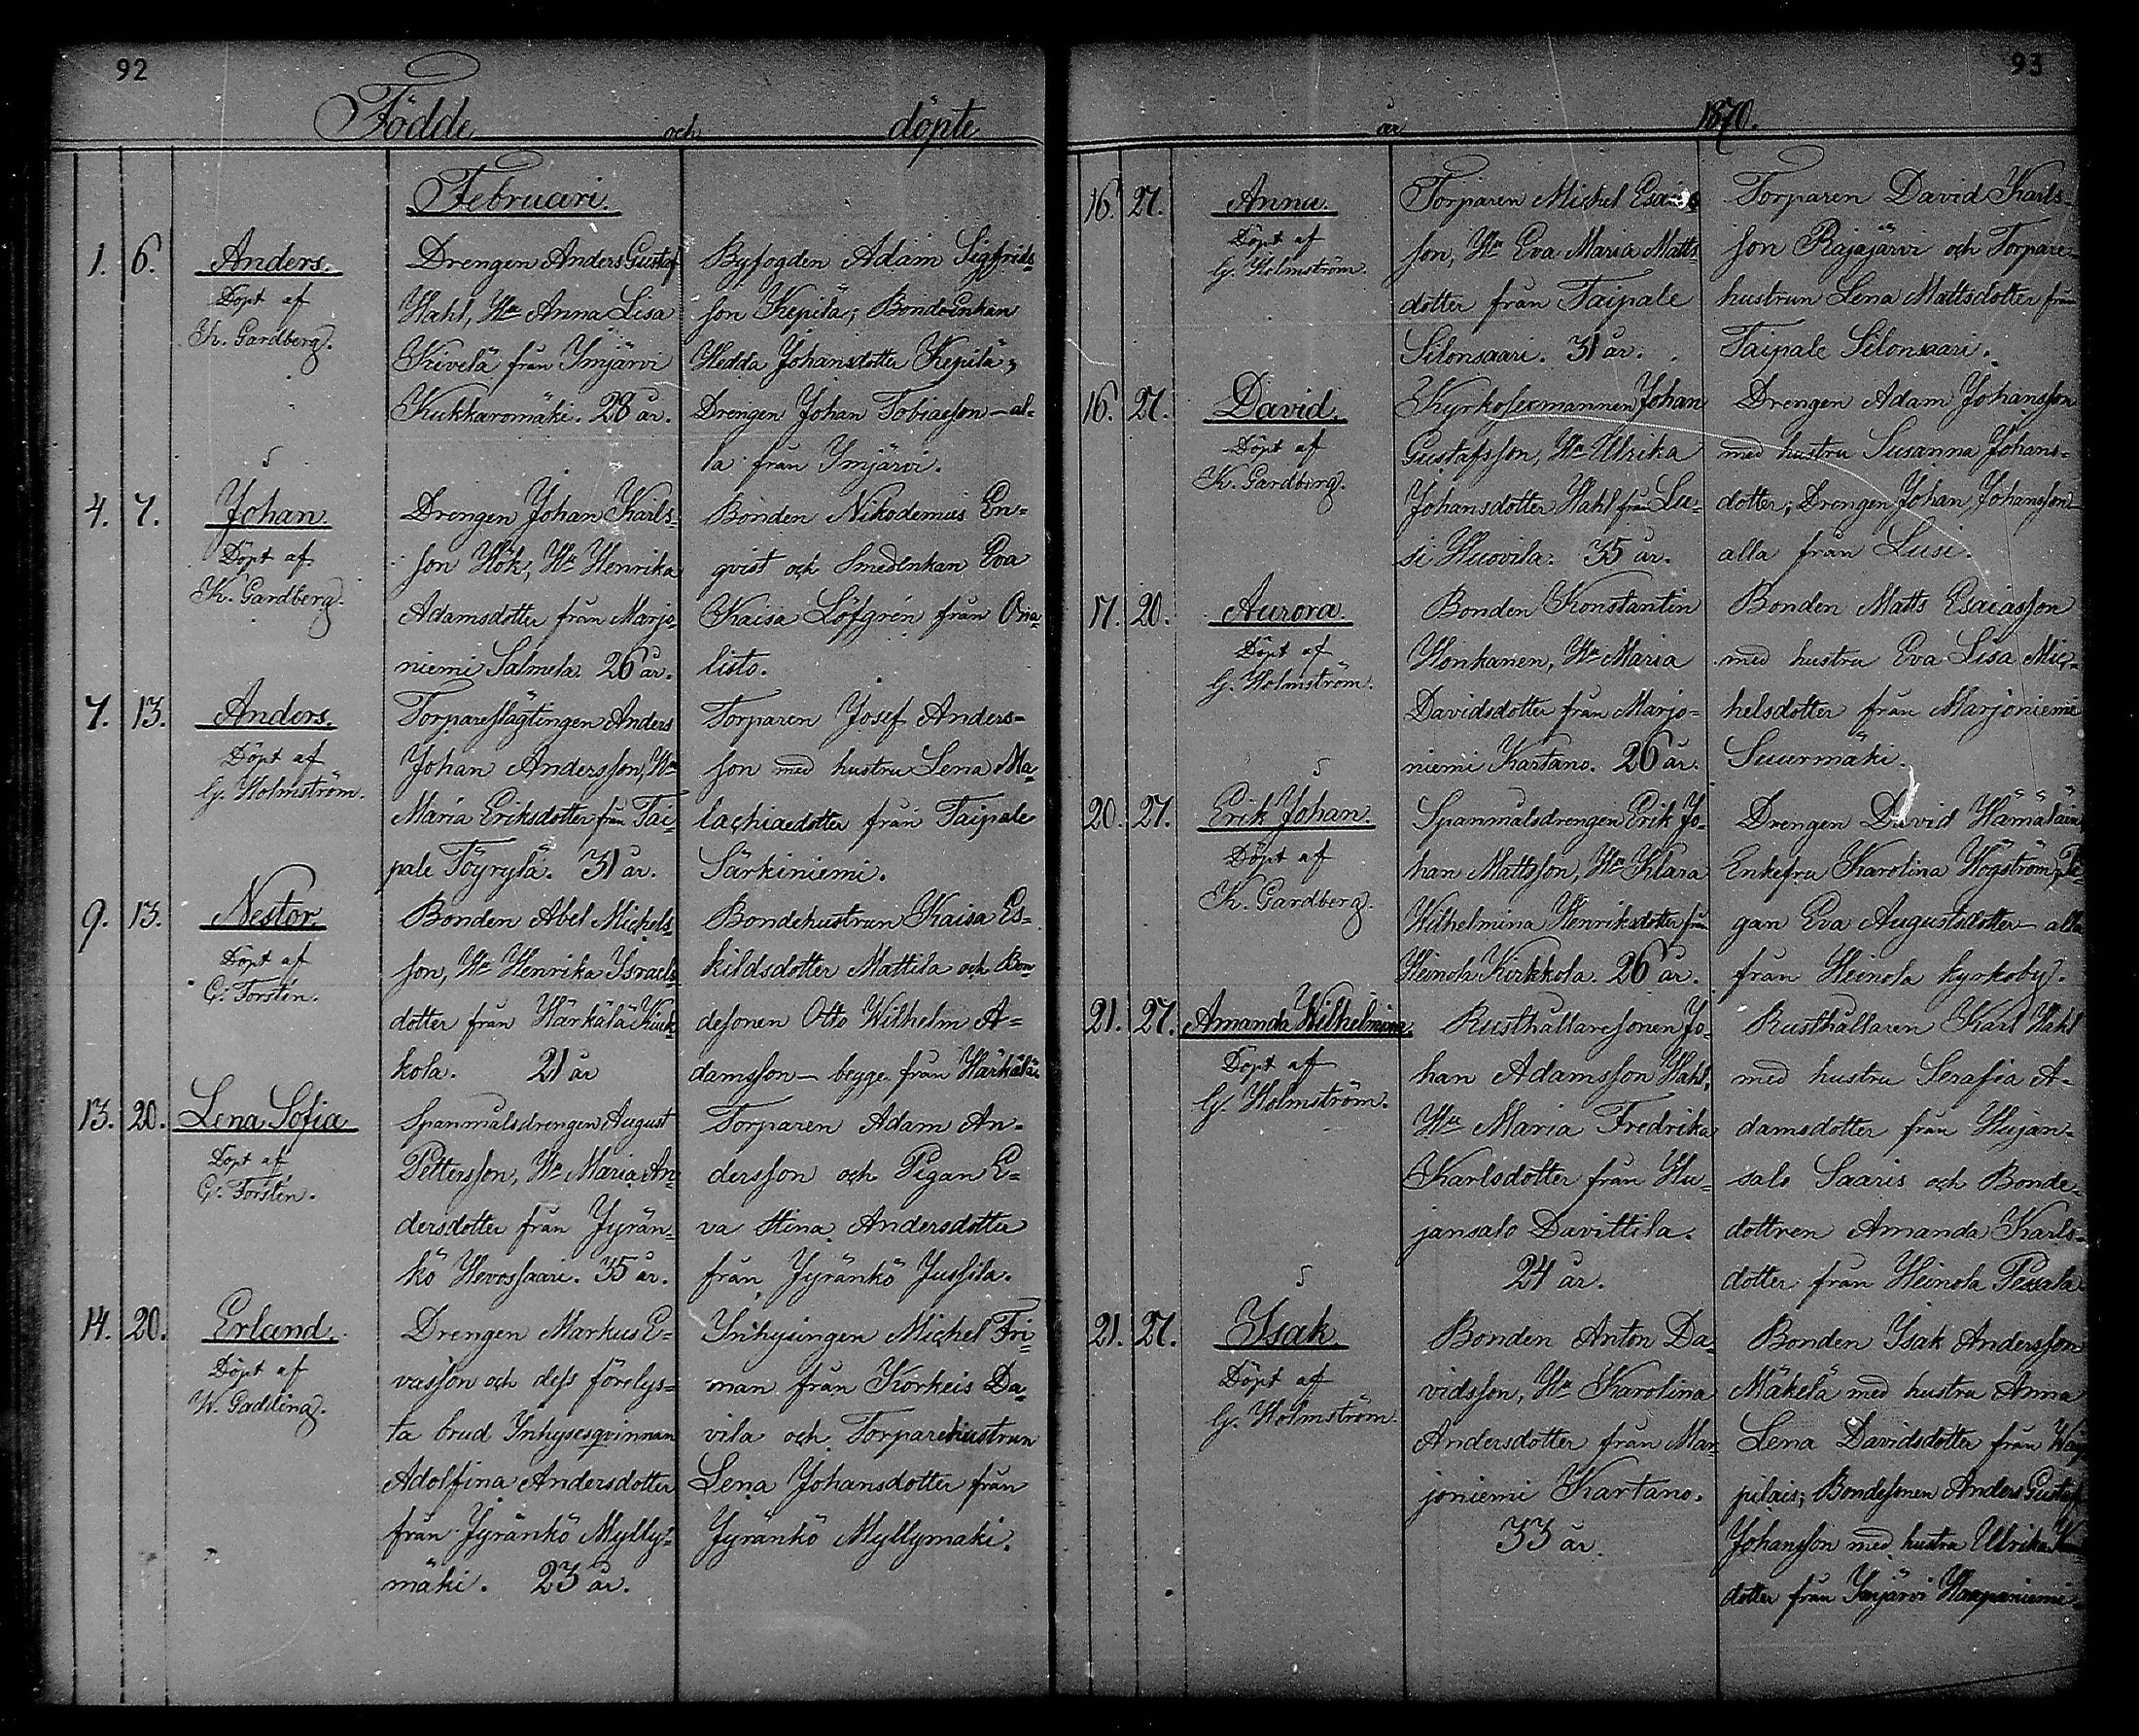 92
Födde och döpte
Februari.
1. 6. Anders.
Döpt af
K. Gardberg.
Drengen Anders Gustaf
Wahl, Hu Anna Lisa
Kivelä från Ymjärvi
Kukkaromäki. 28 år.
Byfogden Adam Sigfrids-
son Kepilä; Bondeenkan
Hedda Johansdotter Kepilä,
Drengen Johan Tobiasson – al-
la från Ymjärvi.
4. 7. Johan.
Döpt af
K. Gardberg.
Drengen Johan Karls-
son Hök, Hu Henrika
Adamsdotter från Marjo-
niemi Salmela. 26 år.
Bonden Nikodemus En-
qvist och Smedenkan Eva
Kaisa Löfgrén från Ona-
listo.
7. 13. Anders.
Döpt af
G. Holmström.
Torpareslägtingen Anders
Johan Andersson, Hu
Maria Eriksdotter från Tai-
pale Töyrylä. 31 år.
Torparen Josef Anders-
son med hustru Lena Ma-
lachiaedotter från Taipale
Särkiniemi.
9. 13. Nestor.
Döpt af
G. Forstén.
Bonden Abel Michels-
son, Hu Henrika Israels-
dotter från Härkälä Kirk-
kola. 21 år
Bondehustrun Kaisa Es-
kildsdotter Mattila och Bon-
desonen Otto Wilhelm A-
damsson – begge från Härkälä.
13. 20. Lena Sofia
Döpt af
G. Forstén.
Spanmålsdrengen August
Pettersson, Hu Maria An-
dersdotter från Jyrän-
kö Hevossaari. 35 år.
Torparen Adam An-
dersson och Pigan E-
va Stina Andersdotter
från Jyränkö Jussila.
14. 20. Erland.
Döpt af
W. Gadding.
Drengen Markus E-
vasson och dess förelys-
ta brud Inhysesqvinnan
Adolfina Andersdotter
från Jyränkö Mylly-
mäki. 23 år.
Inhysingen Michel Fri-
man från Korkeis Da-
vila och Torparehustrun
Lena Johansdotter från
Jyränkö Myllymäki.
93
år 1870.
16. 27. Anna.
Döpt af
G. Holmström.
Torparen Michel Esaias-
son, Hu Eva Maria Matts-
dotter från Taipale
Silonsaari. 31 år.
Torparen David Karls-
son Rajajärvi och Torpare-
hustrun Lena Mattsdotter från
Taipale Silonsaari.
16. 27. David.
Döpt af
K. Gardberg.
Kyrkosexmannen Johan
Gustafsson, Hu Ulrika
Johansdotter Wahl från Lu-
si Huovila. 35 år.
Drengen Adam Johansson
med hustru Susanna Johans-
dotter; Drengen Johan Johansson –
alla från Lusi.
17. 20. Aurora.
Döpt af
G. Holmström.
Bonden Konstantin
Honkanen, Hu Maria
Davidsdotter från Marjo-
niemi Kartano. 26 år.
Bonden Matts Esaiasson
med hustru Eva Lisa Mic-
helsdotter från Marjoniemi
Suurmäki.
20. 27. Erik Johan
Döpt af
K. Gardberg.
Spanmålsdrengen Erik Jo-
han Mattsson, Hu Klara
Wilhelmina Henriksdotter från
Heinola Kirkkola. 26 år.
Drengen David Hämäläin
Enkefru Karolina Högström, Pi-
gan Eva Augustsdotter – alla
från Heinola kyrkoby.
21. 27. Amanda Wilhelmina.
Döpt af
G. Holmström.
Rusthållaresonen Jo-
han Adamsson Wahl,
Hu Maria Fredrika
Karlsdotter från Hu-
jansalo Davittila.
24 år.
Rusthållaren Karl Wahl
med hustru Serafia A-
damsdotter från Hujan-
salo Saaris och Bonde-
dottren Amanda Karls-
dotter från Heinola
21. 27. Isak.
Döpt af
G. Holmström.
Bonden Anton Da-
vidsson, Hu Karolina
Andersdotter från Mar-
joniemi Kartano.
33 år.
Bonden Isak Andersson
Mäkelä med hustru Anna
Lena Davidsdotter från
Bondesonen Anders Gustaf
Johansson med hustru Ulrika
dotter från Ymjärvi Haapaniemi.